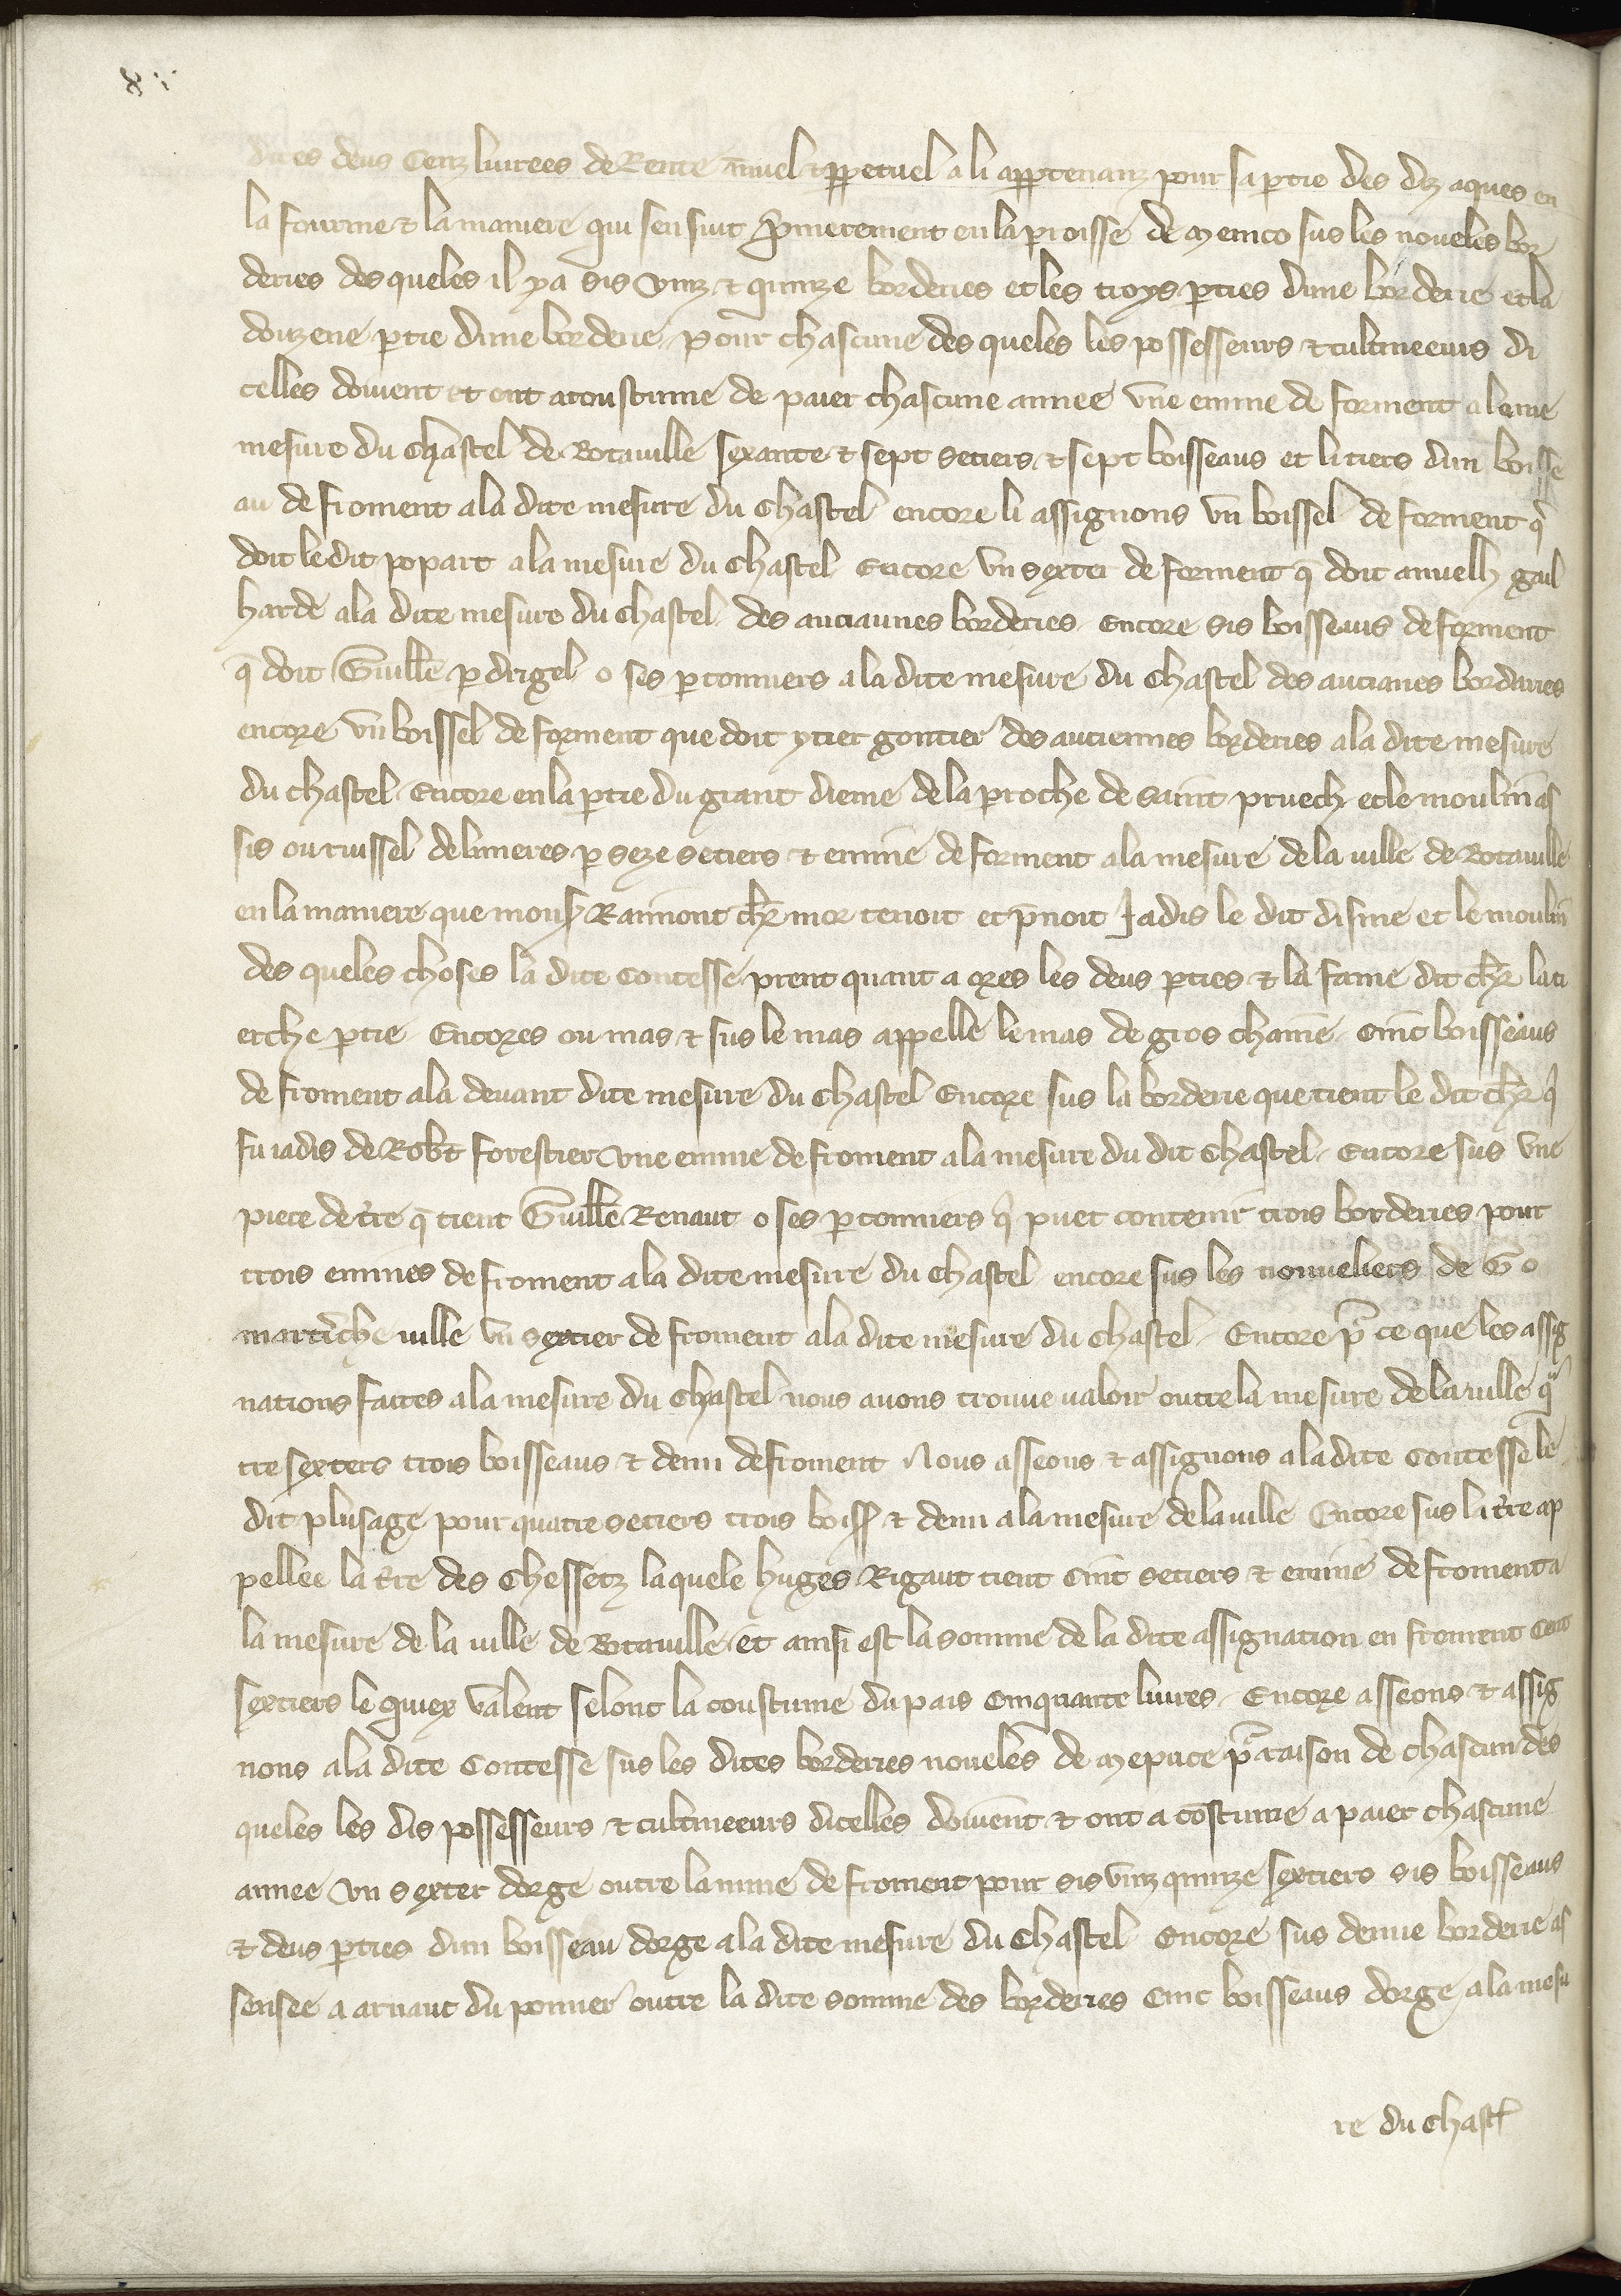 dites deus Cenz livrees de Rente añuel & ꝑpetuel a li apꝑtenanz pour sa ꝑtie des diz aques en
la fourme & la maniere qui sen suit Pͥmierement en la ꝑroisse de memco sus les noveles bor
deries des queles il ya sis vinz & quinze borderies et les troys ꝑties dune borderie et la
douzene ꝑtie dune borderie. pour chascune des queles les possesseurs & cultiveeurs di
celles doivent et ont acoustume de paier chascune annee une emine de forment a la
mesure du Chastel de Botaville sexante & sept setiers & sept boisseaus et li tiers dun boisse
au de froment a la dite mesure du Chastel encore li assignons un boissel de forment qͥ
doit le dit popart a la mesure du Chastel Encore un sexter de forment q̄ doit anuelh gail
harde a la dite mesure du Chastel des anciannes borderies. encore sis boisseaus de forment
q̄ doit Guill̄e ꝑdrigel o ses ꝑconniers a la dite mesure du Chastel des ancianes bordaries
encore un boissel de forment que doit ytier gontier des anciennes borderies a la dite mesure
du chastel. Encore en la ꝑtie du grant dieme de la ꝑroche de saint pruech et le moulin as
sis ou ruissel de limeres ꝑ seze setiers & emine de forment a la mesure de la ville de Botaville
en la maniere que mons̄ Raimont ch̄r mor tenoit et p̄noit Jadis le dit disme et le moulin
des queles choses la dite Contesse prent quant a ores les deus ꝑties & la fame dit ch̄r la ti
erche ꝑtie Encores ou mas & sus le mas appelle le mas de gros chaine Cinc boisseaus
de froment a la devant dite mesure du Chastel Encore sus la borderie que tient le dit ch̄r qͥ
fu iadis de Rob̄t forestier une emine de froment a la mesure du dit Chastel. Encore sus une
piece de t̄re q̄ tient Guill̄e Renaut o ses ꝑconniers qͥ puet contenir trois borderies pour
trois emines de froment a la dite mesure du Chastel encore sus les nouveliers de Go
martͥche ville un sextier de froment a la dite mesure du chastel. Encore pͬ ce que les assig
nations faites a la mesure du Chastel nous avons trouve valoir outre la mesure de la ville qᵃ
tre sexters trois boisseaus & demi de froment Nous asseons & assignons a la dite Contesse le
dit plusage pour quatre setiers trois boiss̄ & demi a la mesure de la ville Encore sus la t̄re ap
pellee la t̄re des Chessetz la quele huges Rigaut tient Cinc setiers & emine de froment a
la mesure de la ville de Botaville. et ainsi est la somme de la dite assignation en froment Cent
sextiers le quiex valent selont la coustume du pais Cinquante livres. Encore asseons & assig
nons a la dite Contesse sus les dites borderies noveles de mepuce pͬ raison de chascun des
queles les dis possesseurs & cultiveeurs dicelles doivent & ont acostume a paier chascune
annee un sexter dorge outre lamine de froment pour sis vinz quinze sextiers sis boisseaus
& deus ꝑties dun boisseau dorge a la dite mesure du Chastel Encore sus demie borderie as
sensee a arnaut du ponner outre la dite somme des borderies Cinc boisseaus dorge a la mesu
re du Chastl̄